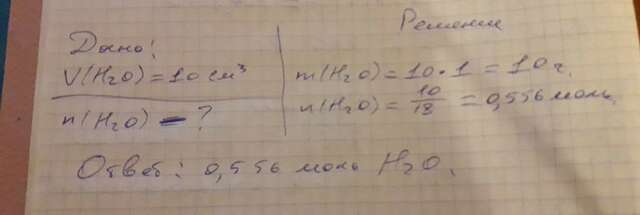 Дано:
V(H₂O) = 10 см³
n(H₂O) - ?
Решение
m(H₂O) = 10 · 1 = 10 г.
n(H₂O) = 10/18 = 0,556 моль.
Ответ: 0,556 моль H₂O.